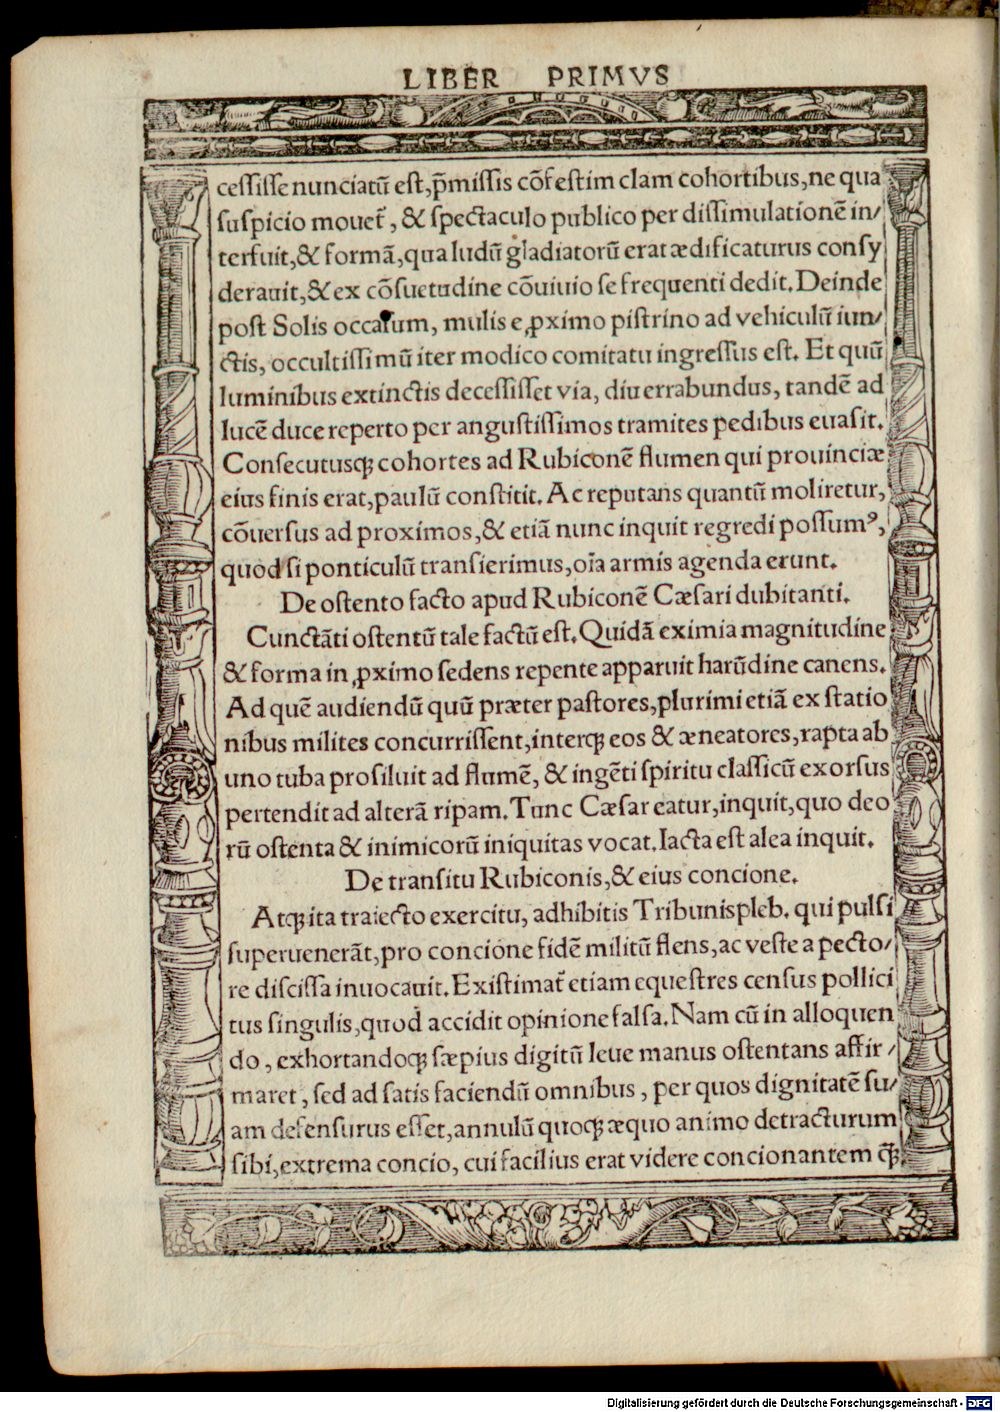 LIBER PRIMVS
cessisse nunciatū est,p̄missis cōfestim clam cohortibus,ne qua
suspicio mouet̃, & spectaculo publico per dissimulationē in/
terfuit,& formā,qua ludū gladiatorū erat ædificaturus consy
derauit,& ex cōsuetudine cōuiuio se frequenti dedit.Deinde
post Solis occasum, mulis e ꝓximo pistrino ad vehiculū iun/
ctis, occultissimū iter modico comitatu ingressus est. Et quū
luminibus extinctis decessisset via, diu errabundus, tandē ad
lucē duce reperto per angustissimos tramites pedibus euasit.
Consecutusqꝫ cohortes ad Rubiconē flumen qui prouinciæ
eius finis erat,paulū constitit. Ac reputans quantū moliretur,
cōuersus ad proximos,& etiā nunc inquit regredi possumꝰ,
quod si ponticulū transierimus,oīa armis agenda erunt.
De ostento facto apud Rubiconē Cæsari dubitanti.
Cunctāti ostentū tale factū est.Quidā eximia magnitudine
& forma in ꝓximo sedens repente apparuit harūdine canens.
Ad quē audiendū quū præter pastores,plurimi etiā ex statio
nibus milites concurrissent,interqꝫ eos & æneatores,rapta ab
uno tuba prosiluit ad flumē, & ingēti spiritu classicū exorsus
pertendit ad alterā ripam.Tunc Cæsar eatur,inquit,quo deo
rū ostenta & inimicorū iniquitas vocat.Iacta est alea inquit.
De transitu Rubiconis,& eius concione.
Atqꝫ ita traiecto exercitu, adhibitis Tribunispleb. qui pulsi
superuenerāt,pro concione fidē militū flens,ac veste a pecto/
re discissa inuocauit.Existimat̃ etiam equestres census pollici
tus singulis,quod accidit opinione falsa.Nam cū in alloquen
do, exhortandoqꝫ sæpius digitū leue manus ostentans affir/
maret, sed ad satis faciendū omnibus, per quos dignitatē su/
am defensurus esset,annulū quoqꝫ æquo animo detracturum
sibi,extrema concio, cui facilius erat videre concionantem q̄ꝫ
Digitalisierung gefördert durch die Deutsche Forschungsgemeinschaft - DFG